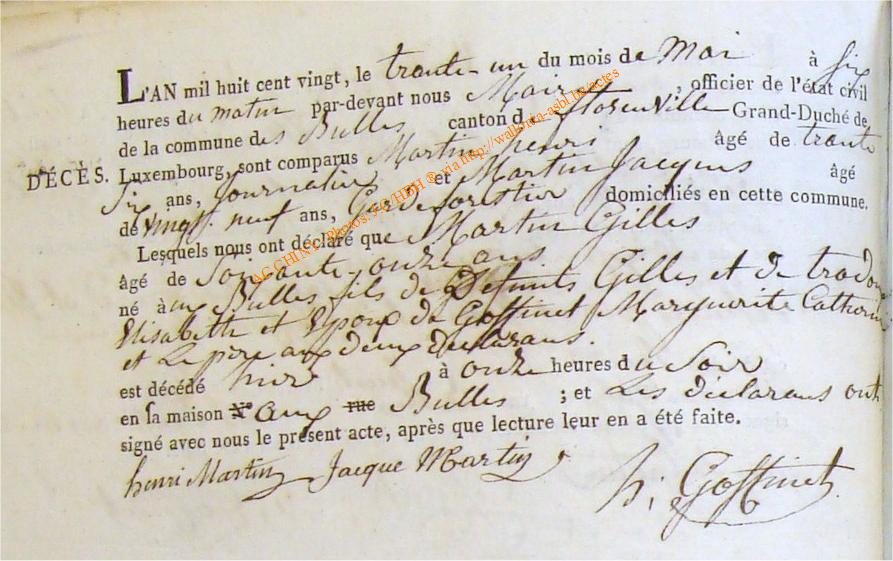 L'AN mil huit cent vingt, le trante-un du mois de Mai à Six
heures du matin par-devant nous Mair, officier de l'état civil
de la commune des Bulles canton d florenville Grand-Duché de
DÉCÈS. Luxembourg, sont comparus Martin henri âgé de trante
Six ans, Journalier et Martin Jacques âgé
de vingt-neuf ans, Garde forestier domiciliés en cette commune.
Lesquels nous ont déclaré que Martin Gilles
âgé de Soixante onze ans
né à aux Bulles fils de Defunts Gilles et de
Elisabeth et Epoux de Goffinet Marguerite Catherine
et Le pere aux deux declarans.
est décédé hier à onze heures du Soir
en sa maison N.° aux rue Bulles ; et Les declarans ont
signé avec nous le présent acte, après que lecture leur en a été faite.
henri Martin Jacque Martin h; Goffinet
AC CHINY - Photos: via http://wallonia-asbl.be/actes